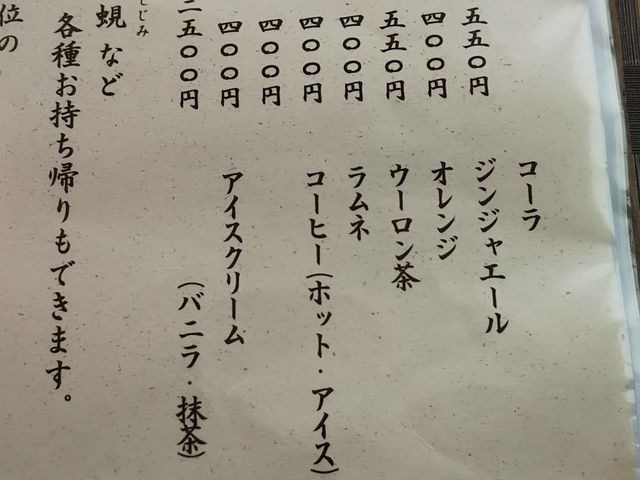 五五〇円
四〇〇円
五五〇円
四〇〇円
四〇〇円
四〇〇円
四〇〇円
五〇〇円
コーラ
ジンジャエール
オレンジ
ウーロン茶
ラムネ
コーヒー(ホット・アイス)
アイスクリーム
(バニラ・抹茶)
しじみ
蜆など
各種お持ち帰りもできます。
位の